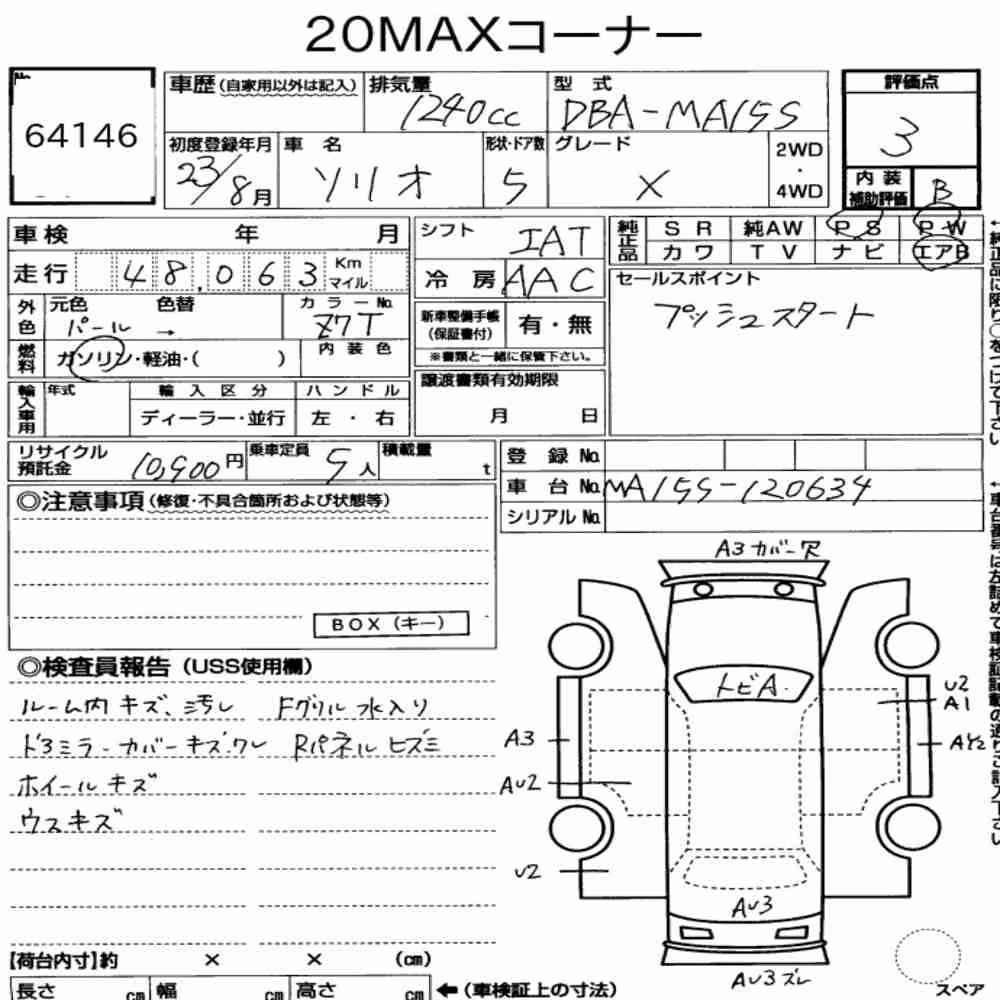 20MAXコーナー
No.
64146
車歴 (自家用以外は記入)
排気量
1240cc
型式
DBA-MA15S
評価点
3
初度登録年月
23/8月
車名
ソリオ
形状・ドア数
5
グレード
X
2WD
・
4WD
内装
補助評価
B
車検 年 月
走行 48,063 Km
マイル
シフト
IAT
冷房 AAC
純正品
SR 純AW PS PW
カワ TV ナビ エアB
外色
元色 色替
パール →
カラーNo.
Z7T
燃料
ガソリン・軽油・( )
内装色
新車整備手帳
(保証書付)
有・無
※書類と一緒に保管下さい。
セールスポイント
プッシュスタート
輸入車用
年式
輸入区分
ディーラー・並行
ハンドル
左・右
譲渡書類有効期限
月 日
リサイクル
預託金
10,900円
乗車定員
5人
積載量
t
登録No.
車台No. MA15S-120634
シリアルNo.
◎注意事項 (修復・不具合箇所および状態等)
BOX (キー)
◎検査員報告 (USS使用欄)
ルーム内キズ、汚レ Fグリル水入り
ド3ミラーカバーキズ,ワレ Rパネルヒズミ
ホイールキズ
ウスキズ
A3カバー穴
トビA.
U2
A1
A3
AY2
AU2
U2
AU3
AU3ズレ
スペア
【荷台内寸】約 × × (cm)
長さ cm 幅 cm 高さ cm ←(車検証上の寸法)
←純正品に限り○をつけて下さい
←車台番号は左詰めで車検証記載の通りご記入下さい